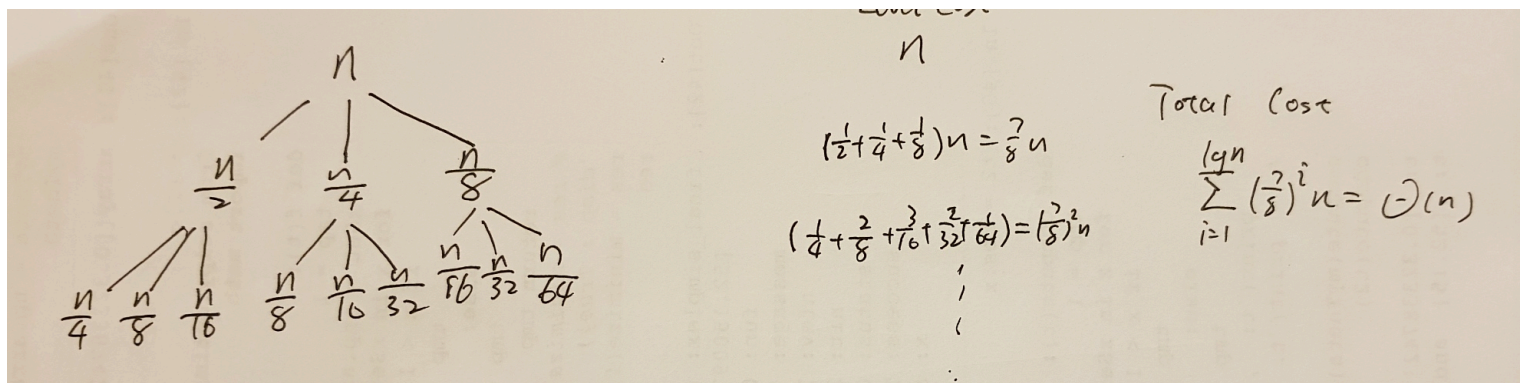 n
n/2 n/4 n/8
n/4 n/8 n/16 n/8 n/16 n/32 n/16 n/32 n/64
Cost
n
(1/2+1/4+1/8)n = 7/8 n
(1/4+2/8+3/16+2/32+1/64) = (7/8)²n
Total Cost
lgn
∑ (7/8)^i n = Θ(n)
i=1